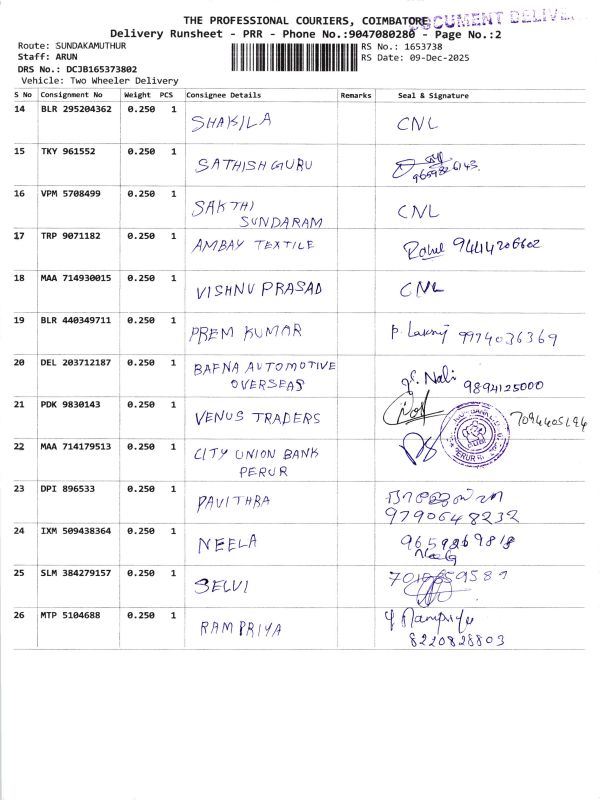 THE PROFESSIONAL COURIERS, COIMBATORE
DOCUMENT DELIVE
Delivery Runsheet - PRR - Phone No.:9047080280 - Page No.:2
Route: SUNDAKAMUTHUR
RS No.: 1653738
Staff: ARUN
RS Date: 09-Dec-2025
DRS No.: DCJB165373802
Vehicle: Two Wheeler Delivery
S No Consignment No Weight PCS Consignee Details Remarks Seal & Signature
14 BLR 295204362 0.250 1 SHAKILA CNL
15 TKY 961552 0.250 1 SATHISH GURU
16 VPM 5708499 0.250 1 SAKTHI CNL
SUNDARAM
17 TRP 9071182 0.250 1 AMBAY TEXTILE Rahul
18 MAA 714930015 0.250 1 VISHNU PRASAD CNL
19 BLR 440349711 0.250 1 PREM KUMAR 9974036369
20 DEL 203712187 0.250 1 BAFNA AUTOMOTIVE
OVERSEAS 9894125000
21 PDK 9830143 0.250 1 VENUS TRADERS
22 MAA 714179513 0.250 1 CITY UNION BANK
PERUR
23 DPI 896533 0.250 1 PAVITHRA
9790648232
24 IXM 509438364 0.250 1 NEELA
25 SLM 384279157 0.250 1 SELVI
26 MTP 5104688 0.250 1 RAMPRIYA
8220828803